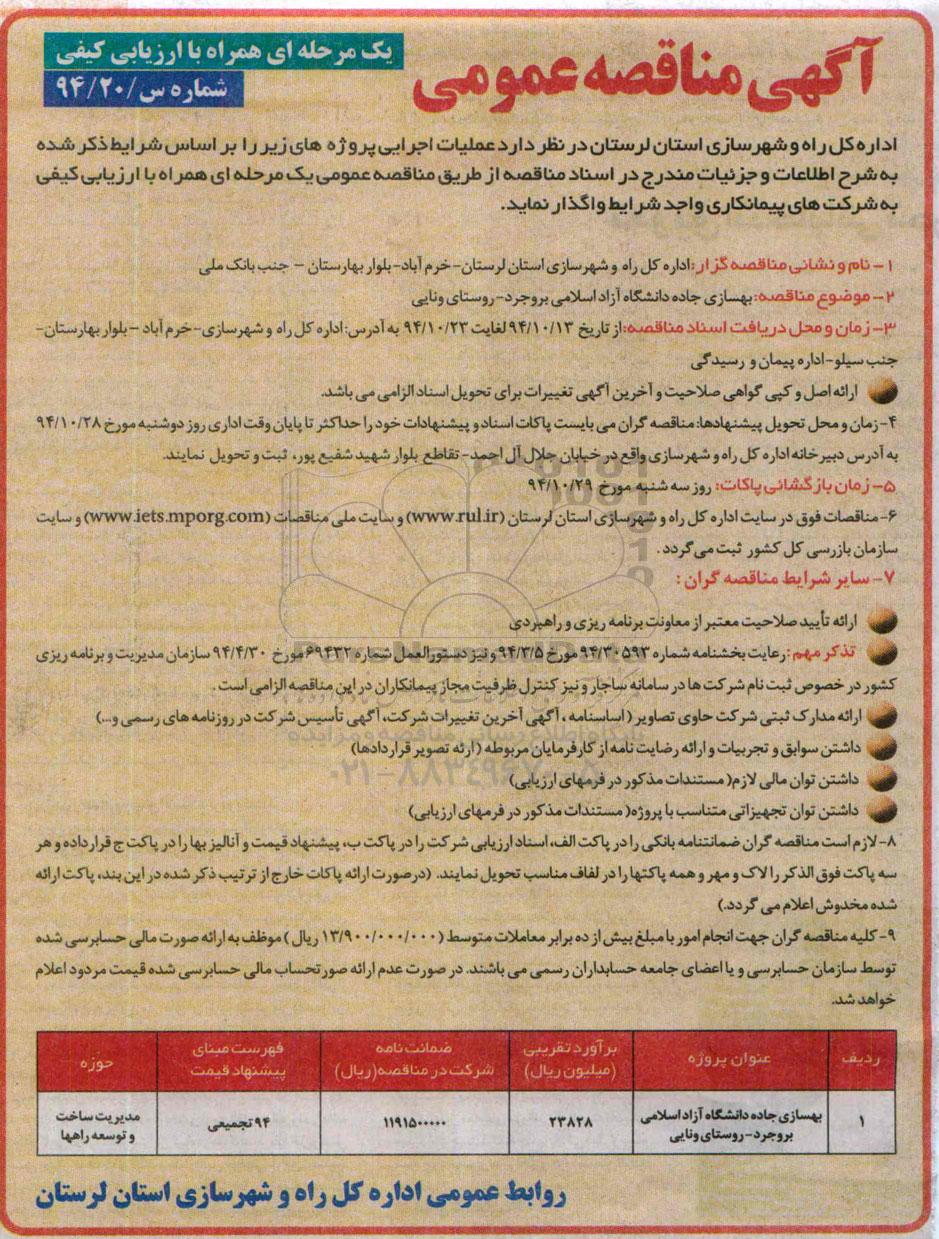 آگهی مناقصه عمومی
یک مرحله ای همراه با ارزیابی کیفی
شماره س/۹۴/۲۰
اداره کل راه و شهرسازی استان لرستان در نظر دارد عملیات اجرایی پروژه های زیر را بر اساس شرایط ذکر شده
به شرح اطلاعات و جزئیات مندرج در اسناد مناقصه از طریق مناقصه عمومی یک مرحله ای همراه با ارزیابی کیفی
به شرکت های پیمانکاری واجد شرایط واگذار نماید.
۱- نام و نشانی مناقصه گزار: اداره کل راه و شهرسازی استان لرستان-خرم آباد-بلوار بهارستان – جنب بانک ملی
۲- موضوع مناقصه: بهسازی جاده دانشگاه آزاد اسلامی بروجرد-روستای ونایی
۳- زمان و محل دریافت اسناد مناقصه: از تاریخ ۹۴/۱۰/۱۳ لغایت ۹۴/۱۰/۲۳ به آدرس: اداره کل راه و شهرسازی-خرم آباد – بلوار بهارستان-
جنب سیلو-اداره پیمان و رسیدگی
ارائه اصل و کپی گواهی صلاحیت و آخرین آگهی تغییرات برای تحویل اسناد الزامی می باشد.
۴- زمان و محل تحویل پیشنهادها: مناقصه گران می بایست پاکات اسناد و پیشنهادات خود را حداکثر تا پایان وقت اداری روز دوشنبه مورخ ۹۴/۱۰/۲۸
به آدرس دبیرخانه اداره کل راه و شهرسازی واقع در خیابان جلال آل احمد- تقاطع بلوار شهید شفیع پور، ثبت و تحویل نمایند.
۵- زمان بازگشائی پاکات: روز سه شنبه مورخ ۹۴/۱۰/۲۹
۶- مناقصات فوق در سایت اداره کل راه و شهرسازی استان لرستان (www.rul.ir) و سایت ملی مناقصات (www.iets.mporg.com) و سایت
سازمان بازرسی کل کشور ثبت می گردد.
۷- سایر شرایط مناقصه گران:
ارائه تأیید صلاحیت معتبر از معاونت برنامه ریزی و راهبردی
تذکر مهم: رعایت بخشنامه شماره ۹۴/۳۰۵۹۳ مورخ ۹۴/۳/۵ و نیز دستورالعمل شماره ۶۹۴۳۲ مورخ ۹۴/۴/۳۰ سازمان مدیریت و برنامه ریزی
کشور در خصوص ثبت نام شرکت ها در سامانه ساجار و نیز کنترل ظرفیت مجاز پیمانکاران در این مناقصه الزامی است.
ارائه مدارک ثبتی شرکت حاوی تصاویر (اساسنامه، آگهی آخرین تغییرات شرکت، آگهی تأسیس شرکت در روزنامه های رسمی و...)
داشتن سوابق و تجربیات و ارائه رضایت نامه از کارفرمایان مربوطه (ارئه تصویر قراردادها)
داشتن توان مالی لازم (مستندات مذکور در فرمهای ارزیابی)
داشتن توان تجهیزاتی متناسب با پروژه (مستندات مذکور در فرمهای ارزیابی)
۸- لازم است مناقصه گران ضمانتنامه بانکی را در پاکت الف، اسناد ارزیابی شرکت را در پاکت ب، پیشنهاد قیمت و آنالیز بها را در پاکت ج قرار داده و هر
سه پاکت فوق الذکر را لاک و مهر و همه پاکتها را در لفاف مناسب تحویل نمایند. (در صورت ارائه پاکات خارج از ترتیب ذکر شده در این بند، پاکت ارائه
شده مخدوش اعلام می گردد.)
۹- کلیه مناقصه گران جهت انجام امور با مبلغ بیش از ده برابر معاملات متوسط (۱۳/۹۰۰/۰۰۰/۰۰۰ ریال) موظف به ارائه صورت مالی حسابرسی شده
توسط سازمان حسابرسی و یا اعضای جامعه حسابداران رسمی می باشند. در صورت عدم ارائه صورتحساب مالی حسابرسی شده قیمت مردود اعلام
خواهد شد.
ردیف عنوان پروژه برآورد تقریبی (میلیون ریال) ضمانت نامه شرکت در مناقصه (ریال) فهرست مبنای پیشنهاد قیمت حوزه
۱ بهسازی جاده دانشگاه آزاد اسلامی بروجرد-روستای ونایی ۲۳۸۲۸ ۱۱۹۱۵۰۰۰۰۰ ۹۴ تجمیعی مدیریت ساخت و توسعه راهها
روابط عمومی اداره کل راه و شهرسازی استان لرستان